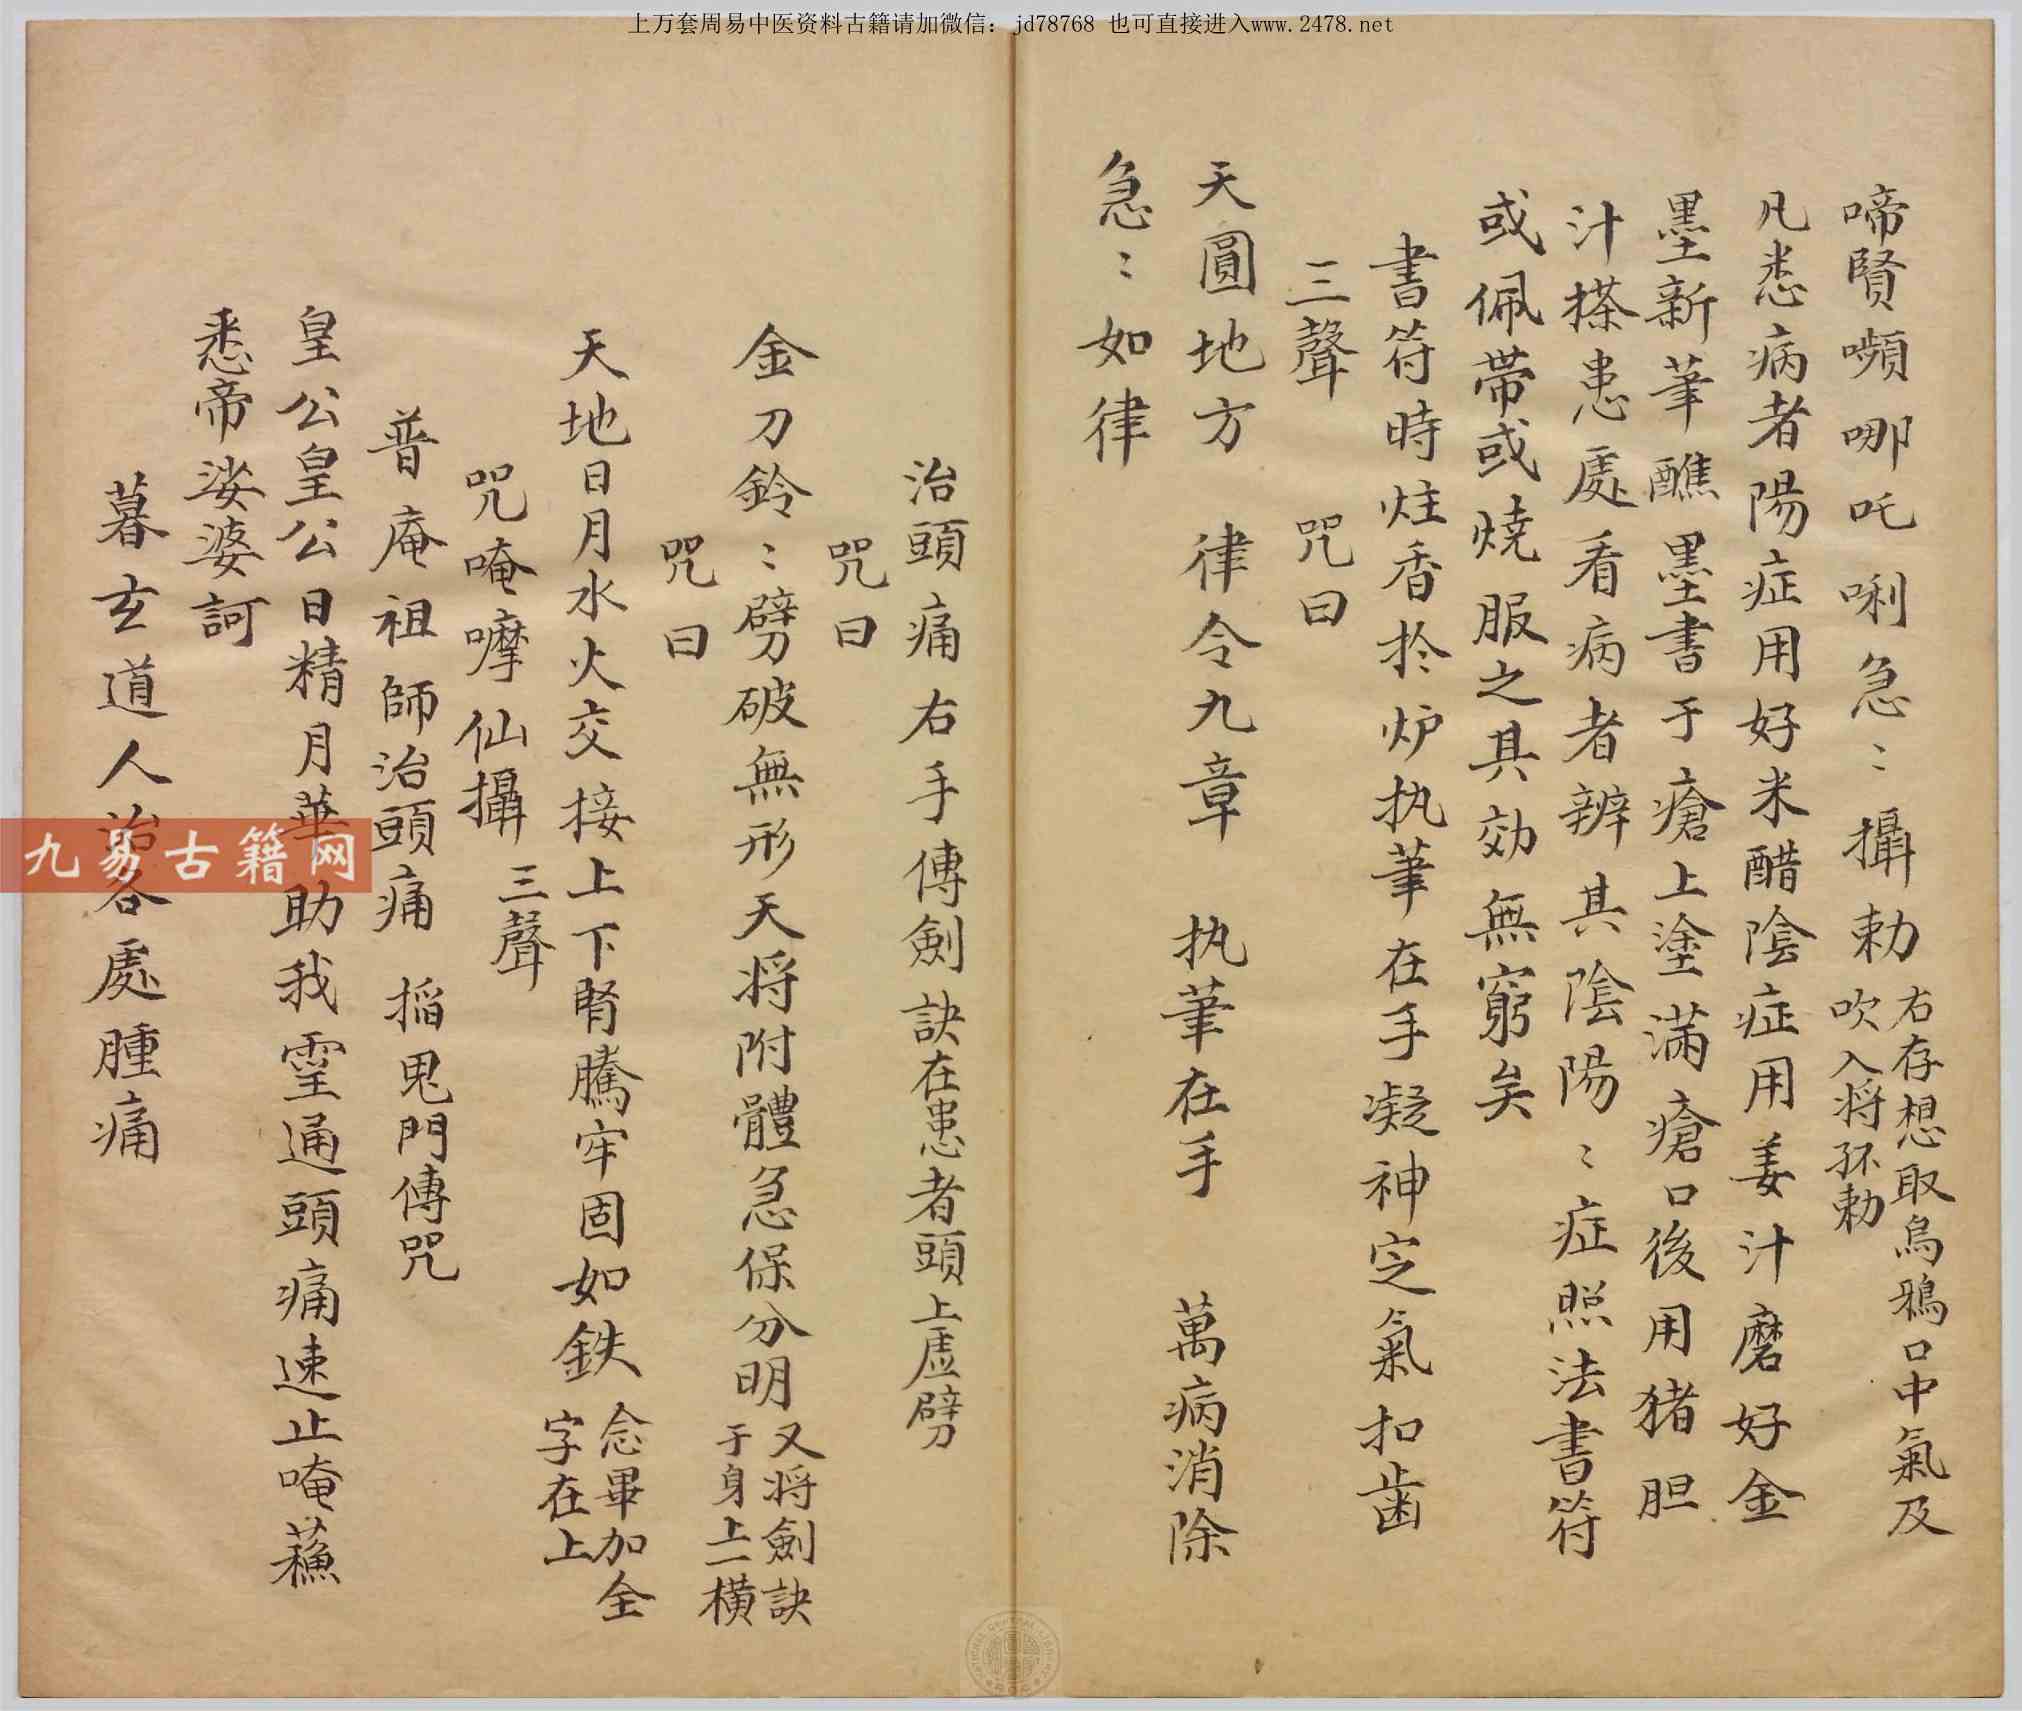 上万套周易中医资料古籍请加微信：jd78768 也可直接进入www.2478.net
啼賢嚬哪吒唎急〻攝勅
右存想取烏鴉口中氣及
吹入将环勅
凡患病者陽症用好米醋陰症用姜汁磨好金
墨新筆醮墨書于瘡上塗滿瘡口後用猪胆
汁搽患處看病者辨其陰陽〻症照法書符
或佩帶或燒服之具効無窮矣
書符時炷香於炉执筆在手凝神定氣扣齒
三聲 咒曰
天圓地方 律令九章 执筆在手 萬病消除
急〻如律
治頭痛右手傳劍訣在患者頭上虛劈
咒曰
金刀鈴〻劈破無形天将附體急保分明
又将劍訣
于身上一橫
咒曰
天地日月水火交接上下腎騰牢固如鉄
念畢加全
字在上
咒唵嚤仙攝 三聲
普庵祖師治頭痛 搯鬼門傳咒
皇公皇公日精月華助我靈通頭痛速止唵蘓
悉帝娑婆訶
暮玄道人治各處腫痛
九易古籍网